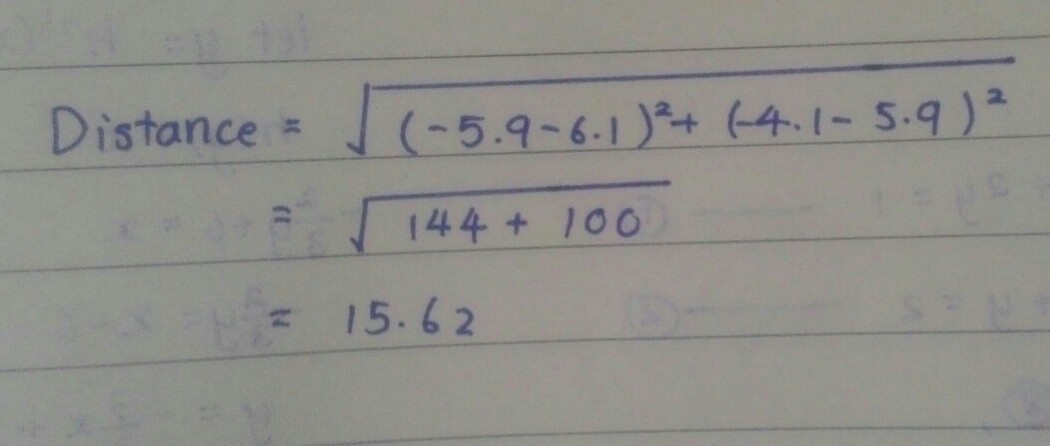 Distance = √(-5.9-6.1)²+ (-4.1- 5.9)²
= √144 + 100
= 15.62